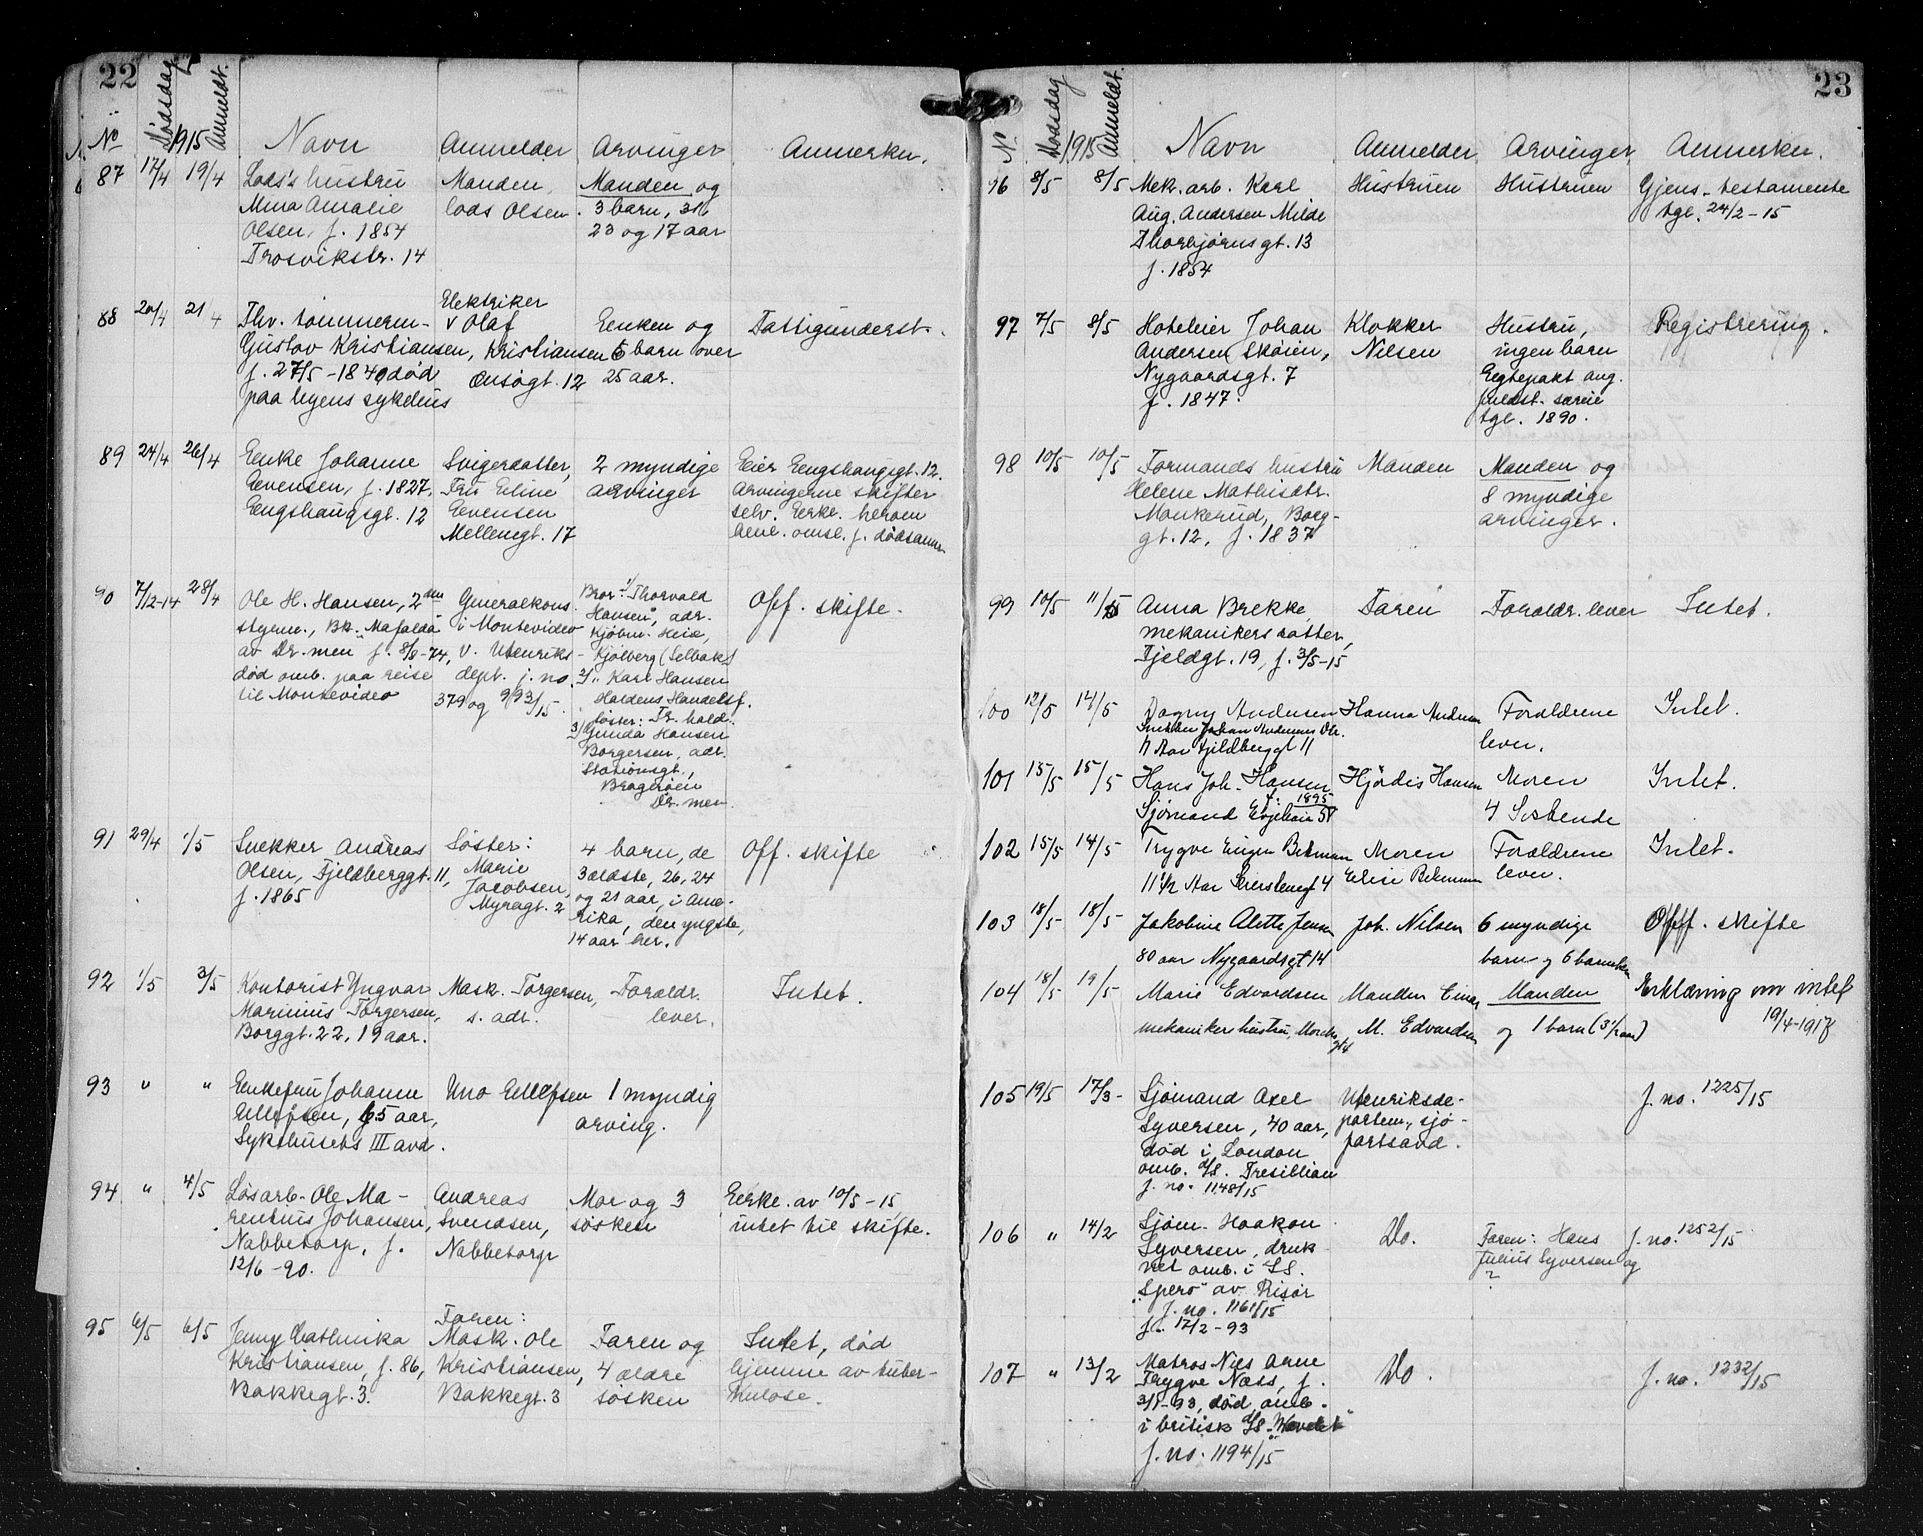 22
No Dødsdag 1915 Anmeldt. Navn Anmelder Arvinger Anmerkn.
87 17/4 19/4 Lods's hustru Manden, Manden og
Mina Amalie lods Olsen. 3 barn, 31
Olsen, f. 1854 23 og 17 aar
Trosvikstr. 14
88 20/4 21/4 Fhv. tømmerm- Elektriker Enken og Fattigunderst.
Gustav Kristiansen, Olaf Kristiansen 6 barn over
f. 27/5-1840 død Onsøgt. 12 25 aar.
paa byens sykehus
89 24/4 26/4 Enke Johanne Svigerdatter, 2 myndige Eier Engshaugsgt. 12.
Evensen, f. 1827, Fru Eline arvinger Arvingerne skifter
Engshaugsgt. 12 Evensen selv. Erkl. herom
Mellemgt. 17 omsl. f. dødsanm
90 7/12-14 28/4 Ole H. Hansen, 2den Generalkons. Bror: 1/ Thorvald Off. skifte.
styrm., Bk. Mafalda i Montevideo Hansen, adr.
av Dr.men f. 8/8-74, v. Utenriks- Kjøbm. Heie,
død omb. paa reise dept. j. no. Kjølberg (Selbak)
til Montevideo 379 og 993/15. 2/ Karl Hansen
Haldens Handelsf.
Søster: Fr. hald.
3/ Gunda Hansen
Borgersen, adr.
Stationsgt.,
Bragerøen
Dr. men.
91 29/4 1/5 Snekker Andreas Søster: 4 barn, de Off. skifte
Olsen, Fjeldberggt. 11, Marie 3 ældste, 26, 24
f. 1865 Jacobsen, og 21 aar, i Ame-
Myragt. 2 rika, den yngste,
14 aar her.
92 1/5 3/5 Kontorist Yngvar Mask. Torgersen, Forældr. Intet.
Marinius Torgersen, s. adr. lever.
Borggt. 22, 19 aar.
93 " " Enkefru Johanne Uno Ellefsen 1 myndig
Ellefsen, 65 aar, arving.
Sykehusets III avd.
94 " 4/5 Løsarb. Ole Ma- Andreas Mor og 3 Erkl. av 10/5-15,
rentius Johansen, Svendsen, søsken intet til skifte.
Nabbetorp, f. Nabbetorp
12/6-90.
95 6/5 6/5 Jenny Cathinka Faren: Faren og Intet, død
Kristiansen, f. 86, Mask. Ole 4 ældre hjemme av tuber-
Bakkegt. 3. Kristiansen, søsken kulose.
Bakkegt. 3
23
N. Dødsdag 1915 Anmeldt. Navn Anmelder Arvinger Anmerkn.
96 8/5 8/5 Mek. arb. Karl Hustruen Hustruen Gjens. testamente
Aug. Andersen Milde tgl. 24/2-15
Thorbjørnsgt. 13
f. 1854
97 7/5 8/5 Hoteleier Johan Klokker Hustru, Registrering.
Andersen Skøien, Nilsen ingen barn
Nygaardsgt. 7 Egtepakt ang.
f. 1847. fuldst. særeie
tgl. 1890.
98 10/5 10/5 Formands hustru Manden Manden og
Helene Mathisdtr. 8 myndige
Monkerud, Borg- arvinger.
gt. 12, f. 1837
99 10/5 11/5 Anna Brekke, Faren Forældr. lever Intet.
mekanikers datter,
Fjeldgt. 19, f. 3/5-15
100 12/5 14/5 Dagny Andersen Hanna Andersen Forældrene Intet.
Snekker Johan Andersens Dtr. lever.
11 Aar Fjeldberggt 11
101 15/5 15/5 Hans Joh. Hansen Hjørdis Hansen Moren Intet.
f: 1895
Sjømand Evjebaie 58 4 Søskende
102 15/5 14/5 Trygve Eugen Bekman Moren Forældrene Intet.
11 1/2 Aar 4 Elise Bekman lever.
103 18/5 18/5 Jakobine Alette Jensen Joh. Nilsen 6 myndige Off. skifte
80 aar Nygaardsgt 14 barn og 6 barnebarn
104 18/5 19/5 Marie Edvardsen Manden Einar Manden Erklæring om intet
mekaniker hustru, M. Edvardsen og 1 barn (3 1/2 aar) 19/4-1917
105 19/5 17/3- Sjømand Axel Utenriksde- J. no. 1225/15
Syversen, 40 aar, partem., sjø-
død i London fartsavd.
omb. D/S. Tresillian
J. no. 1148/15
106 " 14/2 Sjøm. Haakon Do. Faren: Hans J. no. 1252/15
Syversen, druk- Julius Syversen og
net omb. i SS. ?
"Spero" av Risør
J. no. 1161/15
f. 17/2-93
107 " 13/2 Matros Nils Arne Do. J. no. 1232/15
Trygve Næss, f.
3/8-93, død omb.
i britisk D/S. "Wavelet"
J. no. 1194/15